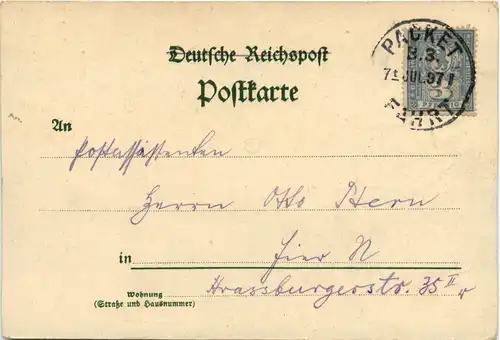 Deutsche Reichspost
Postkarte
PACKET
B.3.
7 JUL.97
FAHRT
3
PFENNIG
An
Postassistenten
Herrn Otto Stern
in Hier N
Wohnung
(Straße und Hausnummer)
Strassburgerstr. 35 II r